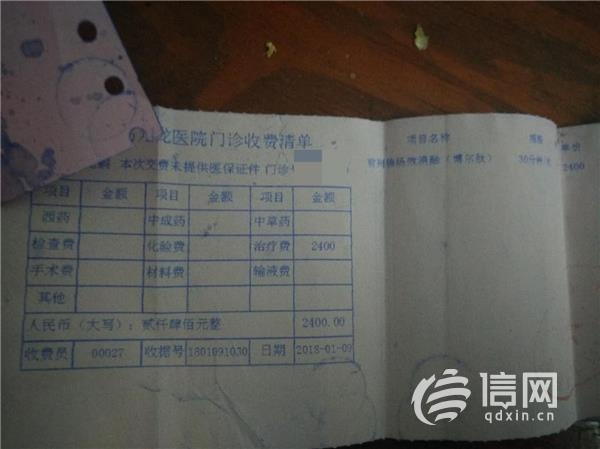 龙医院门诊收费清单
本次交费未提供医保证件 门诊
项目 金额 项目 金额 项目 金额
西药 中成药 中草药
检查费 化验费 治疗费 2400
手术费 材料费 输液费
其他
人民币（大写）：贰仟肆佰元整 2400.00
收费员 00027 收据号 1801091030 日期 2018-01-09
项目名称 单价
消融（博尔肽） 30分钟/次 2400
信网
qdxin.cn